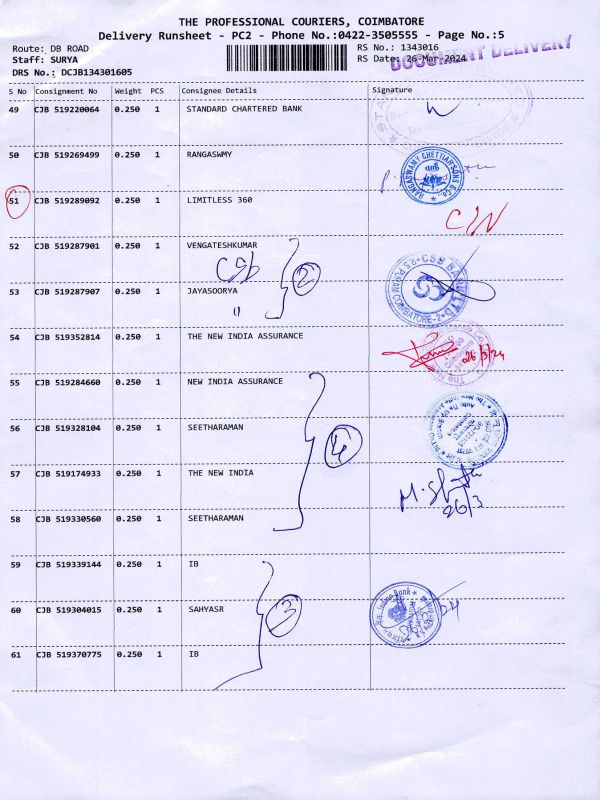 THE PROFESSIONAL COURIERS, COIMBATORE
Delivery Runsheet - PC2 - Phone No.:0422-3505555 - Page No.:5
Route: DB ROAD
RS No.: 1343016
DOCUMENT DELIVERY
Staff: SURYA
RS Date: 26-Mar-2024
DRS No.: DCJB134301605
S No Consignment No Weight PCS Consignee Details Signature
49 CJB 519220064 0.250 1 STANDARD CHARTERED BANK
50 CJB 519269499 0.250 1 RANGASWMY
RANGASWAMY CHETTIAR SONS & Co.,
51 CJB 519289092 0.250 1 LIMITLESS 360
52 CJB 519287901 0.250 1 VENGATESHKUMAR
CSB 2
CSB BANK LTD R S PURAM COIMBATORE-2
53 CJB 519287907 0.250 1 JAYASOORYA
"
54 CJB 519352814 0.250 1 THE NEW INDIA ASSURANCE
26/3/24
55 CJB 519284660 0.250 1 NEW INDIA ASSURANCE
56 CJB 519328104 0.250 1 SEETHARAMAN
4
57 CJB 519174933 0.250 1 THE NEW INDIA
26/3
58 CJB 519330560 0.250 1 SEETHARAMAN
59 CJB 519339144 0.250 1 IB
60 CJB 519304015 0.250 1 SAHYASR
3
Indian Bank
61 CJB 519370775 0.250 1 IB